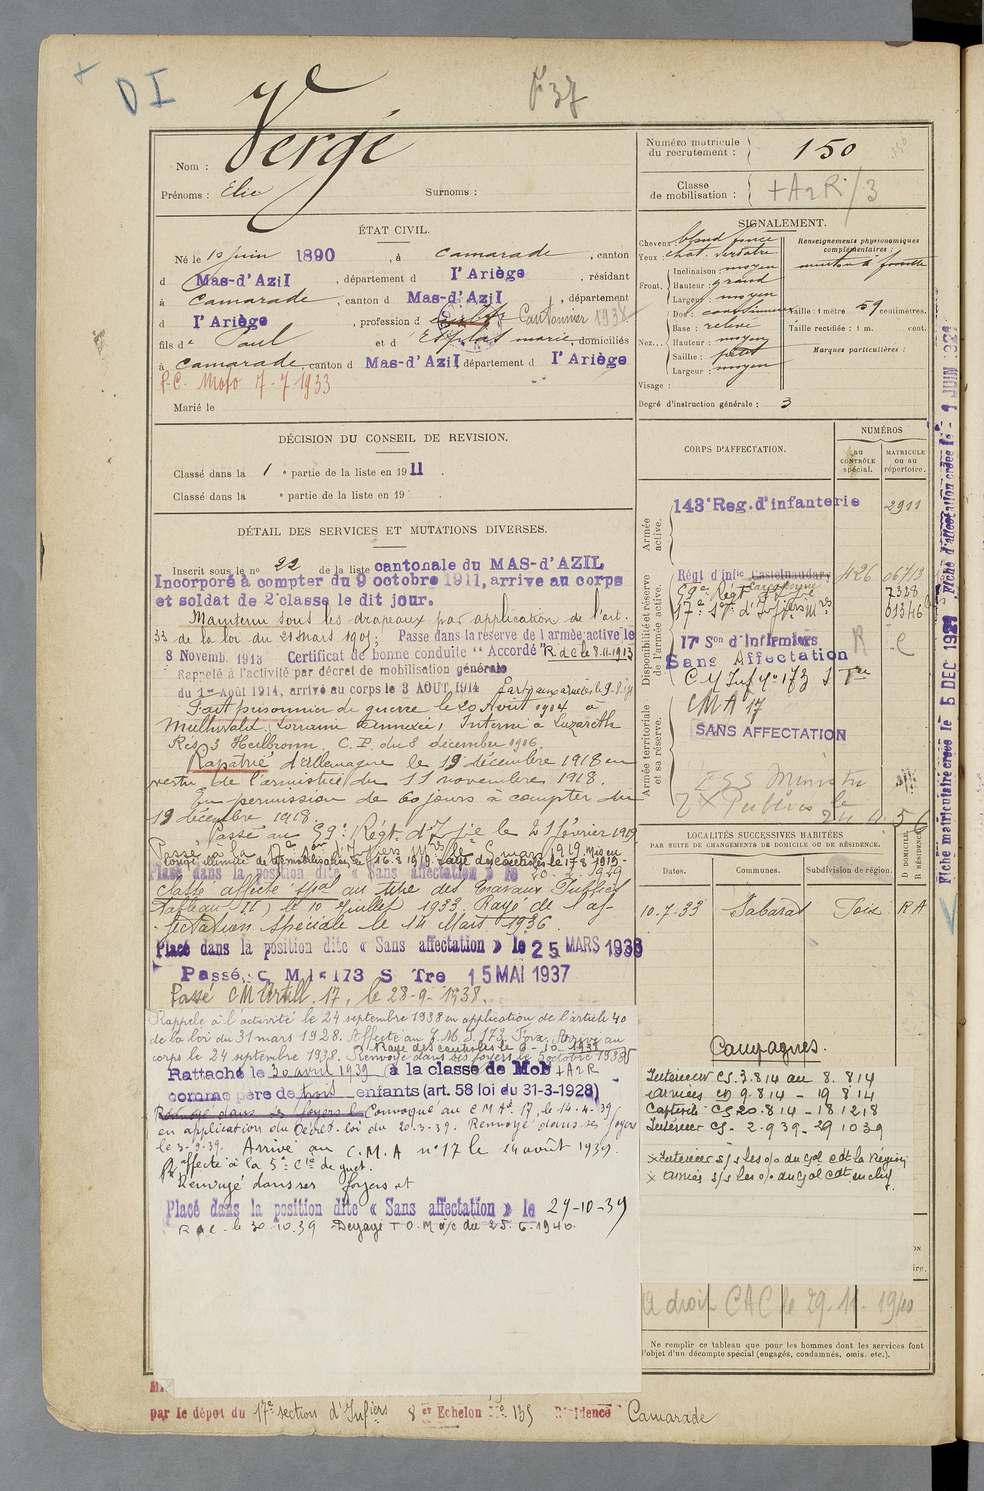 D I
F 37
Nom : Vergé
Prénoms : Elie Surnoms :
ÉTAT CIVIL.
Né le 10 juin 1890, à Camarade, canton
d Mas-d'Azil, département d l'Ariège, résidant
à Camarade, canton d Mas-d'Azil, département
d l'Ariège, profession d Cantonnier 1938
fils de Paul et d' Esplas marie, domiciliés
à Camarade, canton d Mas-d'Azil département d l'Ariège
P.C. Moto 7-7 1933
Marié le
DÉCISION DU CONSEIL DE REVISION.
Classé dans la 1 e partie de la liste en 1911.
Classé dans la e partie de la liste en 19 .
DÉTAIL DES SERVICES ET MUTATIONS DIVERSES.
Inscrit sous le no 22 de la liste cantonale du MAS-d'AZIL
Incorporé à compter du 9 octobre 1911, arrive au corps
et soldat de 2e classe le dit jour.
Maintenu sous les drapeaux par application de l'art.
33 de la loi du 21 mars 1905; Passe dans la réserve de l'armée active le
8 Novemb. 1913 Certificat de bonne conduite "Accordé" R.d.c le 8.11.1913
Rappelé à l'activité par décret de mobilisation générale
du 1er Août 1914, arrivé au corps le 3 AOUT 1914 Parti aux armées le 9.8.14
Fait prisonnier de guerre le 20 Août 1914 à
Mulhwald. Lorraine Annexée; Interné à Lazareth
Rés. 3 Heilbronn. C.P. du 8 décembre 1916.
Rapatrié d'Allemagne le 19 décembre 1918 en
vertu de l'armistice du 11 novembre 1918.
En permission de 60 jours à compter du
19 décembre 1918.
Passé au 59e Régt d'Infie le 21 février 1919
congé illimité de démobilisation le 16.8.1919.
Placé dans la position dite « Sans affectation » le 20-2-1929
Classé affecté spal au titre des Travaux Publics
(tableau II) le 10 Juillet 1933. Rayé de l'af-
-fectation Spéciale le 14 Mars 1936.
Placé dans la position dite « Sans affectation » le 25 MARS 1936
Passé C M I 173 S Tre 15 MAI 1937
Passé CM Artill. 17, le 28-9-1938.
Rappelé à l'activité le 24 septembre 1938 en application de l'article 40
de la loi du 31 mars 1928. Affecté au C.M.I. 173. Foix. Arrivé au
Rayé des contrôles le 6-10-1938
corps le 24 septembre 1938. Renvoyé dans ses foyers le 5 octobre 1938
Rattaché le 30 avril 1939 à la classe de Mob +A2R
comme père de trois enfants (art. 58 loi du 31-3-1928)
Renvoyé dans ses foyers le Convoqué au CMA 17, le 14-4-39
en application du Décret-loi du 20-3-39. Renvoyé dans ses foyers
le 3-9-39. Arrivé au C.M.A n° 17 le 24 août 1939.
Affecté à la 5e Cie de guet.
Renvoyé dans ses foyers et
Placé dans la position dite « Sans affectation » le 29-10-39
R d C le 30-10-39 Dégagé T.O.M d/c du 25-6-1940.
par le dépôt du 17e section d'Infiers 8 er Echelon No 135 Résidence Camarade
Numéro matricule
du recrutement : 150
Classe
de mobilisation : +A2R/3
SIGNALEMENT.
Cheveux blond foncé
Yeux chat. verdâtre
Front. Inclinaison moyen
Hauteur : grand
Largeur : moyen
Nez... Dos :
Base : relevé
Hauteur : moyen
Saillie : petit
Largeur : moyen
Visage :
Renseignements physionomiques
complémentaires :
menton à fossette
Taille : 1 mètre 59 centimètres.
Taille rectifiée : 1 m. cent.
Marques particulières :
Degré d'instruction générale : 3
CORPS D'AFFECTATION.
NUMÉROS
au
CONTRÔLE
spécial.
MATRICULE
ou au
répertoire.
Armée
active.
143e Reg. d'infanterie 2911
Disponibilité et réserve
de l'armée active.
Régt d'Infie Castelnaudary 426 06713
59e Régt d'Infie 7328
17e Son d'Infiers Mres 01346
17e Son d'Infirmiers R C
Sans Affectation
C M Inf No 173 S Tre
Armée territoriale
et sa réserve.
CMA 17
SANS AFFECTATION
LOCALITÉS SUCCESSIVES HABITÉES
PAR SUITE DE CHANGEMENTS DE DOMICILE OU DE RÉSIDENCE.
Dates. Communes. Subdivision de région. D DOMICILE R RÉSIDENCE
10-7-33 Sabarat Foix R A
Campagnes.
Intérieur CS. 3.8 14 au 8.8 14
Armées CD 9.8 14 - 19 8 14
Captivité CS 20.8 14 - 18 12 18
Intérieur CS - 2.9 39 - 29 10 39
x Intérieur s/s les o/o du Gal Cdt la Région
x Armées s/s les o/o du Gal Cdt en chef
droit CAC le 29-11-1940
Ne remplir ce tableau que pour les hommes dont les services font
l'objet d'un décompte spécial (engagés, condamnés, omis, etc.).
Fiche matriculaire créée le 5 DEC 1921 Fiche d'affectation créée le - 9 JUIN 1921